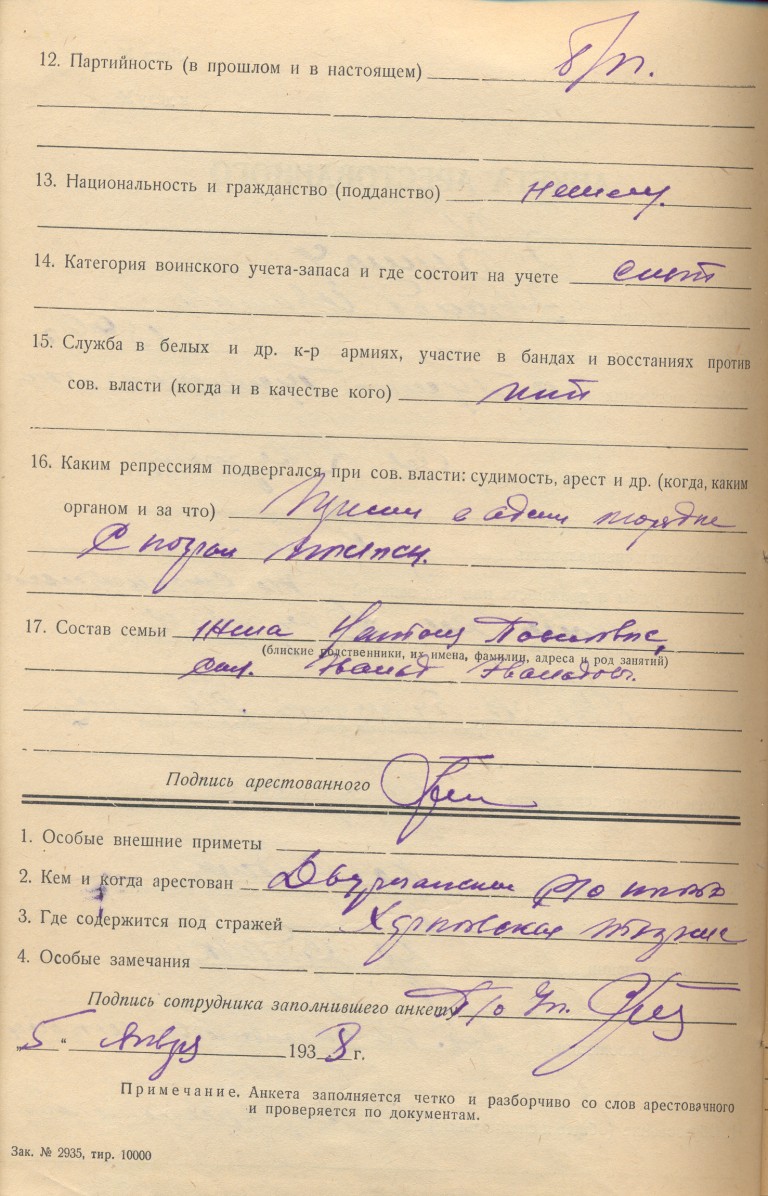 12. Партийность (в прошлом и в настоящем) б/п.
13. Национальность и гражданство (подданство) немец.
14. Категория воинского учета-запаса и где состоит на учете
15. Служба в белых и др. к-р армиях, участие в бандах и восстаниях против
сов. власти (когда и в качестве кого) нет
16. Каким репрессиям подвергался при сов. власти: судимость, арест и др. (когда, каким
органом и за что) в адми порядке
17. Состав семьи жена
(блиские родственники, их имена, фамилии, адреса и род занятий)
Эвальд Эвальдов.
Подпись арестованного
1. Особые внешние приметы
2. Кем и когда арестован Двуречанское Р/о нквд
3. Где содержится под стражей Харковская
4. Особые замечания
Подпись сотрудника заполнившего анкету
„5“ Января 1938 г.
Примечание. Анкета заполняется четко и разборчиво со слов арестованного
и проверяется по документам.
Зак. № 2935, тир. 10000